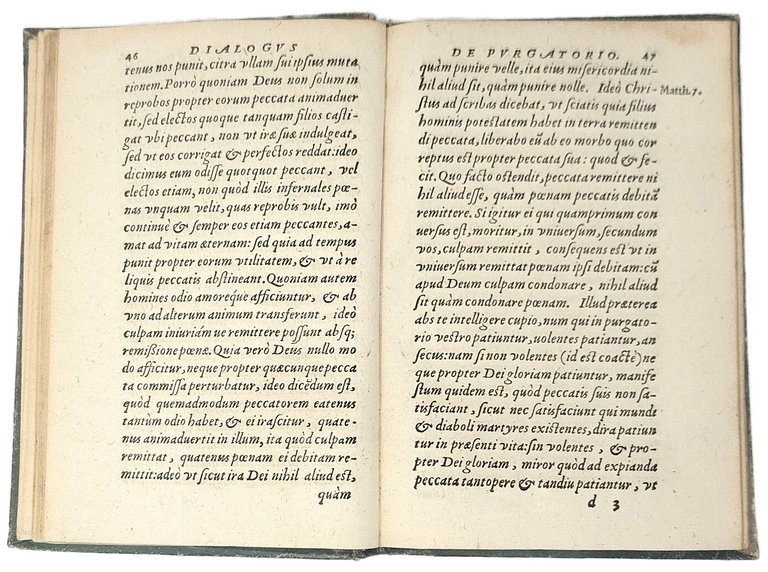 46 DIALOGVS
tenus nos punit, citra vllam sui ipsius muta
tionem. Porrò quoniam Deus non solum in
reprobos propter eorum peccata animaduer
tit, sed electos quoque tanquam filios casti-
gat vbi peccant, non vt iræ suæ indulgeat,
sed vt eos corrigat & perfectos reddat: ideo
dicimus eum odisse quotquot peccant, vel
electos etiam, non quòd illis infernales pœ-
nas vnquam velit, quas reprobis vult, imò
continuè & semper eos etiam peccantes, a-
mat ad vitam æternam: sed quia ad tempus
punit propter eorum vtilitatem, & vt à re
liquis peccatis abstineant. Quoniam autem
homines odio amoreque afficiuntur, & ab
vno ad alterum animum transferunt, ideò
culpam iniuriám ue remittere possunt absq;
remissione pœnæ. Quia verò Deus nullo mo
do afficitur, neque propter quæcunque pecca
ta commissa perturbatur, ideo dicẽdum est,
quòd quemadmodum peccatorem eatenus
tantùm odio habet, & ei irascitur, quate-
nus animaduertit in illum, ita quòd culpam
remittat, quatenus pœnam ei debitam re-
mittit: adeò vt sicut ira Dei nihil aliud est,
quàm
DE PVRGATORIO. 47
quàm punire velle, ita eius misericordia ni-
hil aliud sit, quàm punire nolle. Ideò Chri-
Matth. 7.
stus ad scribas dicebat, vt sciatis quia filius
hominis potestatem habet in terra remitten
di peccata, liberabo eũ ab eo morbo quo cor
reptus est propter peccata sua: quòd & fe-
cit. Quo facto ostendit, peccata remittere ni
hil aliud esse, quàm pœnam peccatis debitã
remittere. Si igitur ei qui quamprimum con
uersus est, moritur, in vniuersum, secundum
vos, culpam remittit, consequens est vt in
vniuersum remittat pœnam ipsi debitam: cũ
apud Deum culpam condonare, nihil aliud
sit quàm condonare pœnam. Illud præterea
abs te intelligere cupio, num qui in purgato-
rio vestro patiuntur, volentes patiantur, an
secus: nam si non volentes (id est coactè) ne
que propter Dei gloriam patiuntur, manife
stum quidem est, quòd peccatis suis non sa-
tisfaciant, sicut nec satisfaciunt qui mundi
& diaboli martyres existentes, dira patiun
tur in præsenti vita: sin volentes, & pro-
pter Dei gloriam, miror quòd ad expianda
peccata tantopere & tandiu patiantur, vt
d 3